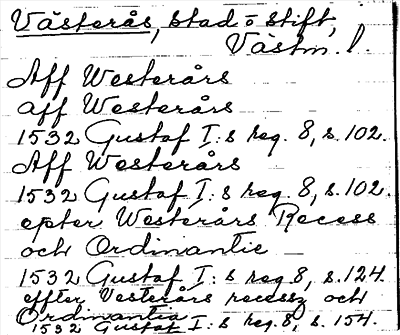 Västerås, stad o stift,
Västm. l.
Aff Westerårs
aff Westerårs
1532 Gustaf I:s reg. 8, s. 102.
Aff Westerårs
1532 Gustaf I:s reg. 8, s. 102.
epter Westerårs Recess
och Ordinantie —
1532 Gustaf I:s reg 8, s. 124.
effter Vesterårs recessz och
Ordinantia
1532 Gustaf I:s reg. 8, s. 154.